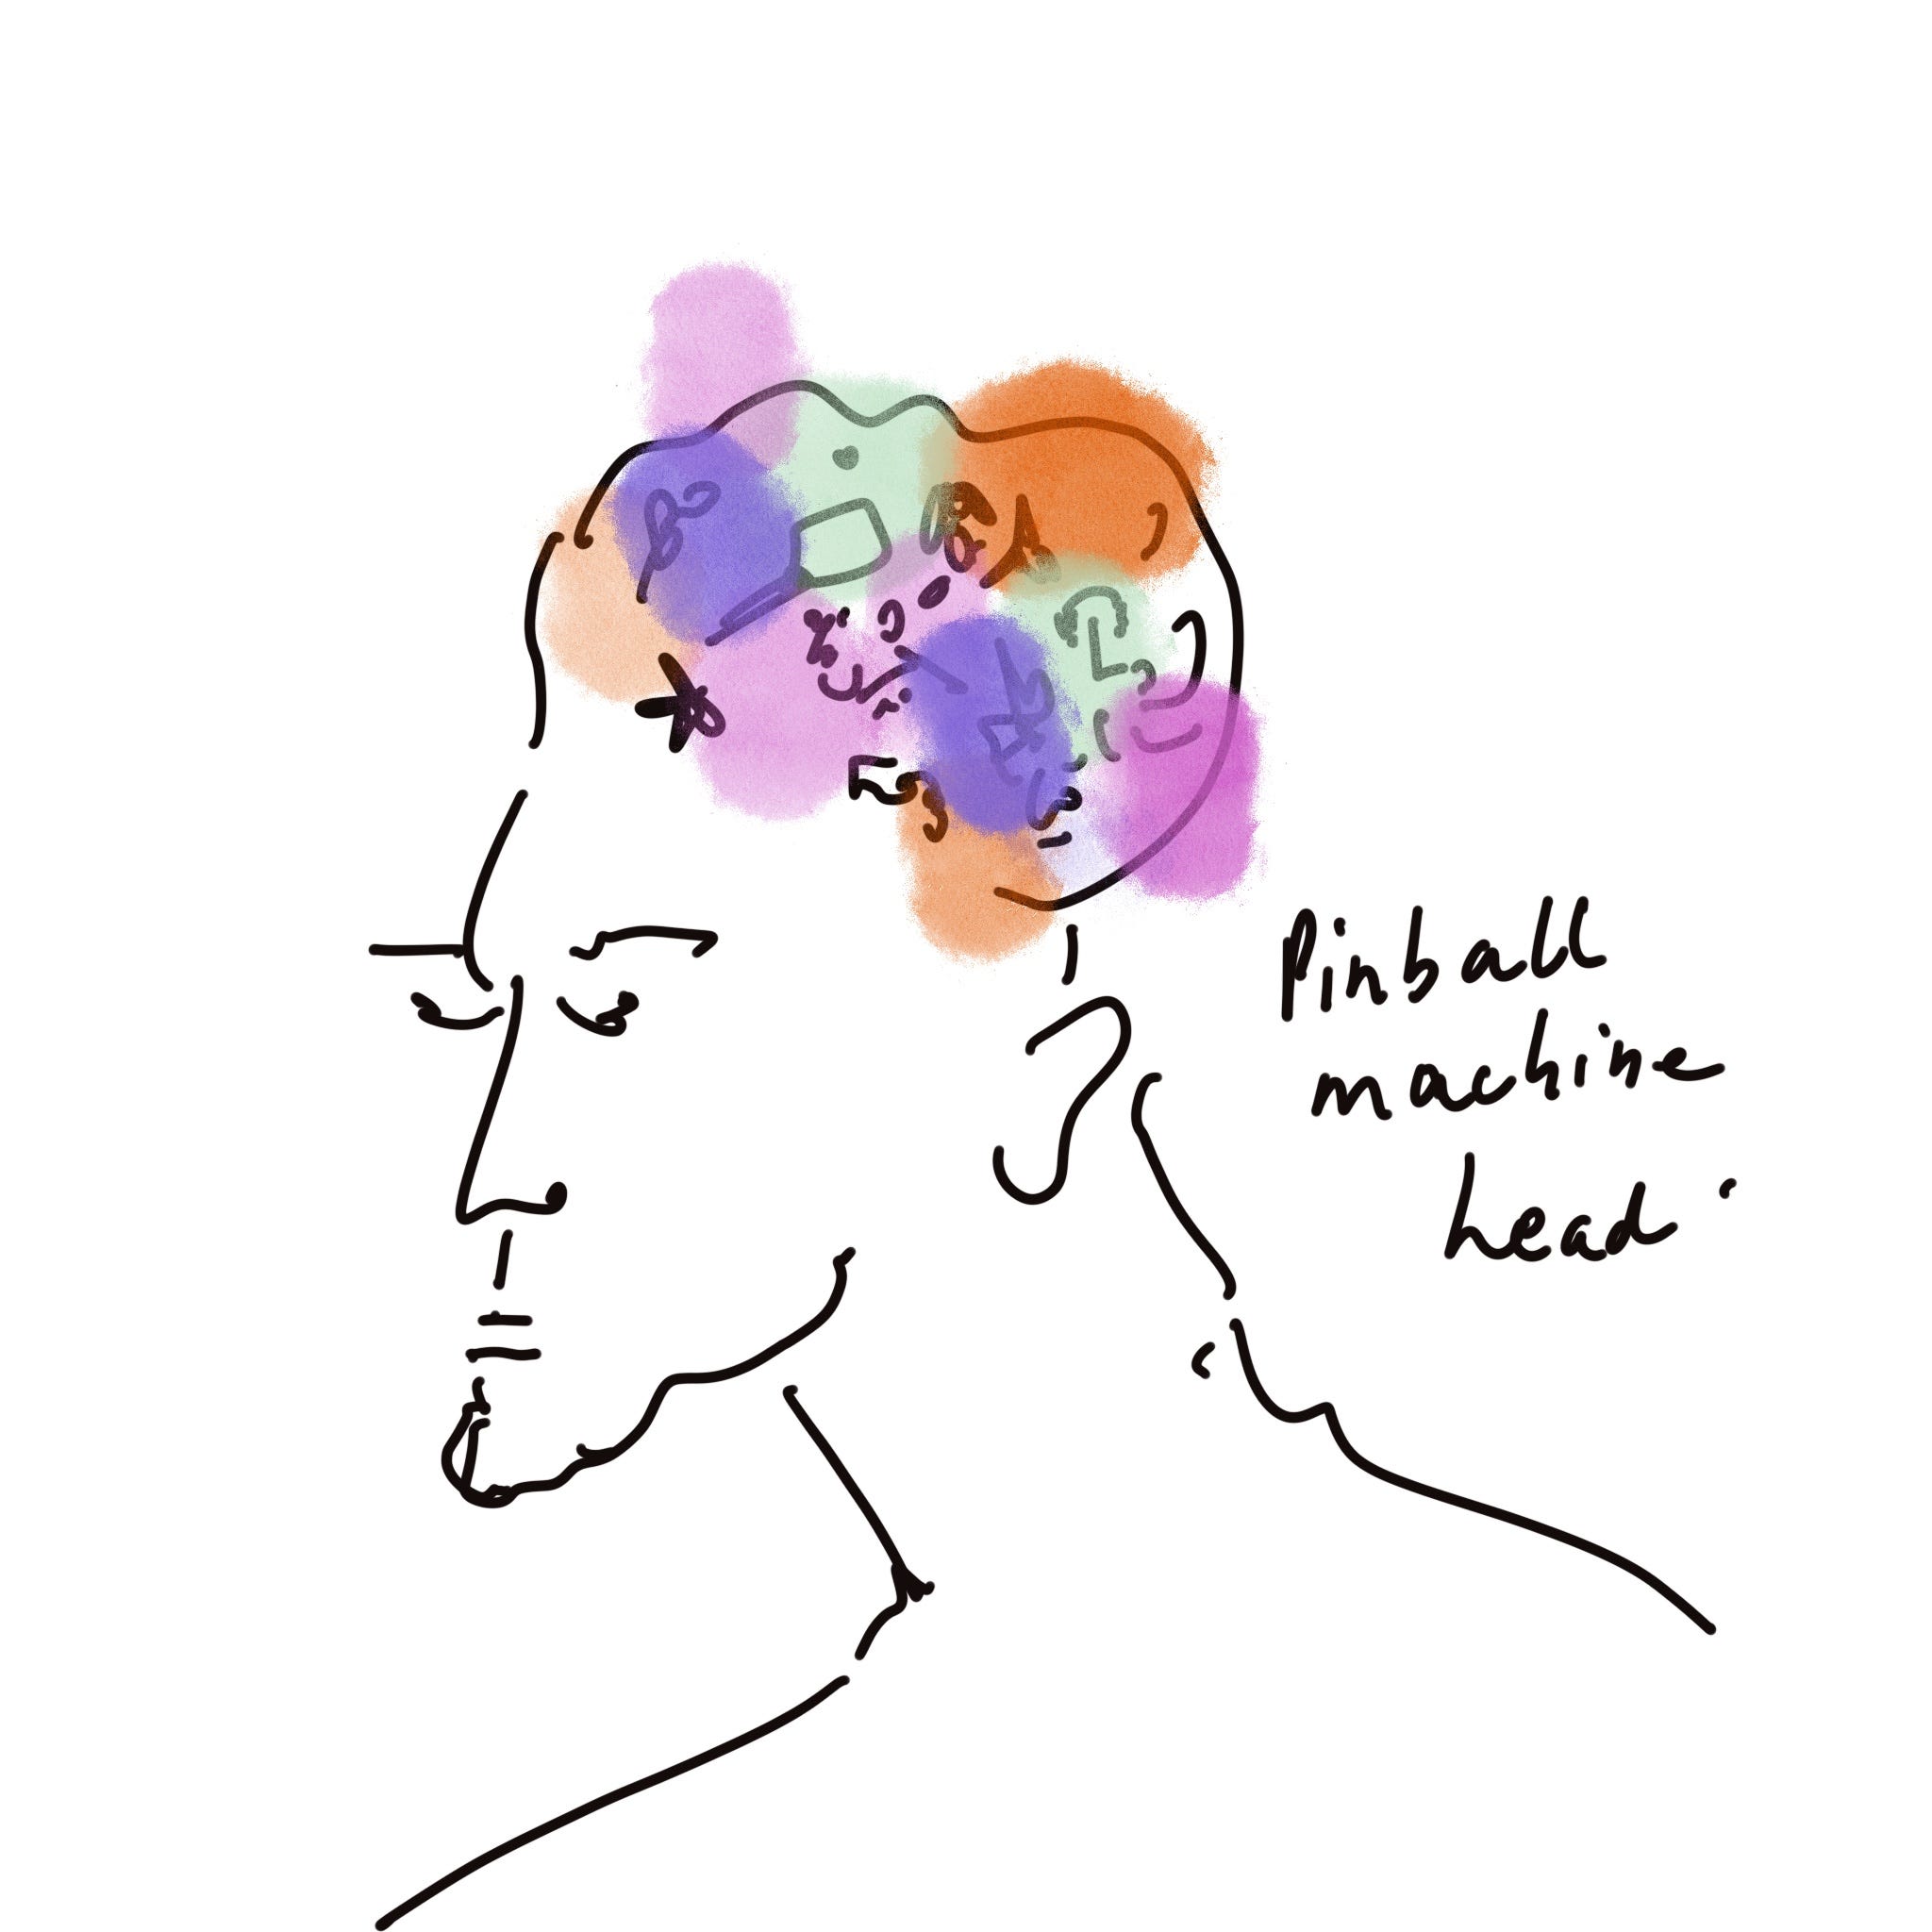 Pinball
machine
head